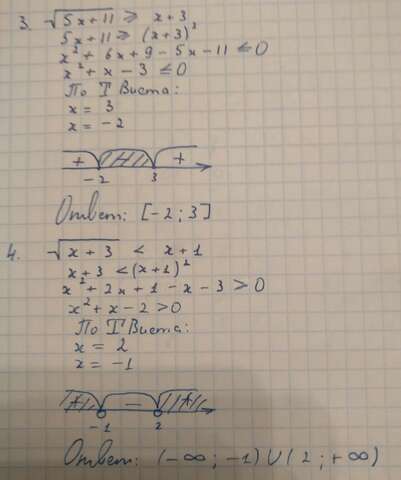 3. √5x+11 ⩾ x+3
5x+11 ⩾ (x+3)²
x² + 6x+9 - 5x-11 ⩽ 0
x² + x - 3 ⩽ 0
По Т Виета:
x = 3
x = -2
+ - +
-2 3
Ответ: [-2; 3]
4. √x+3 < x+1
x+3 < (x+1)²
x² + 2x + 1 - x - 3 > 0
x² + x - 2 > 0
По Т Виета:
x = 2
x = -1
+ - +
-1 2
Ответ: (-∞; -1) ∪ (2; +∞)